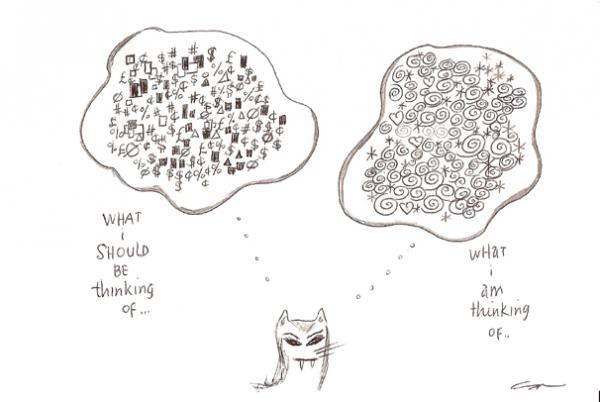 WHAT
i
SHOULD
BE
thinking
of...
WHAT
i
am
thinking
OF..